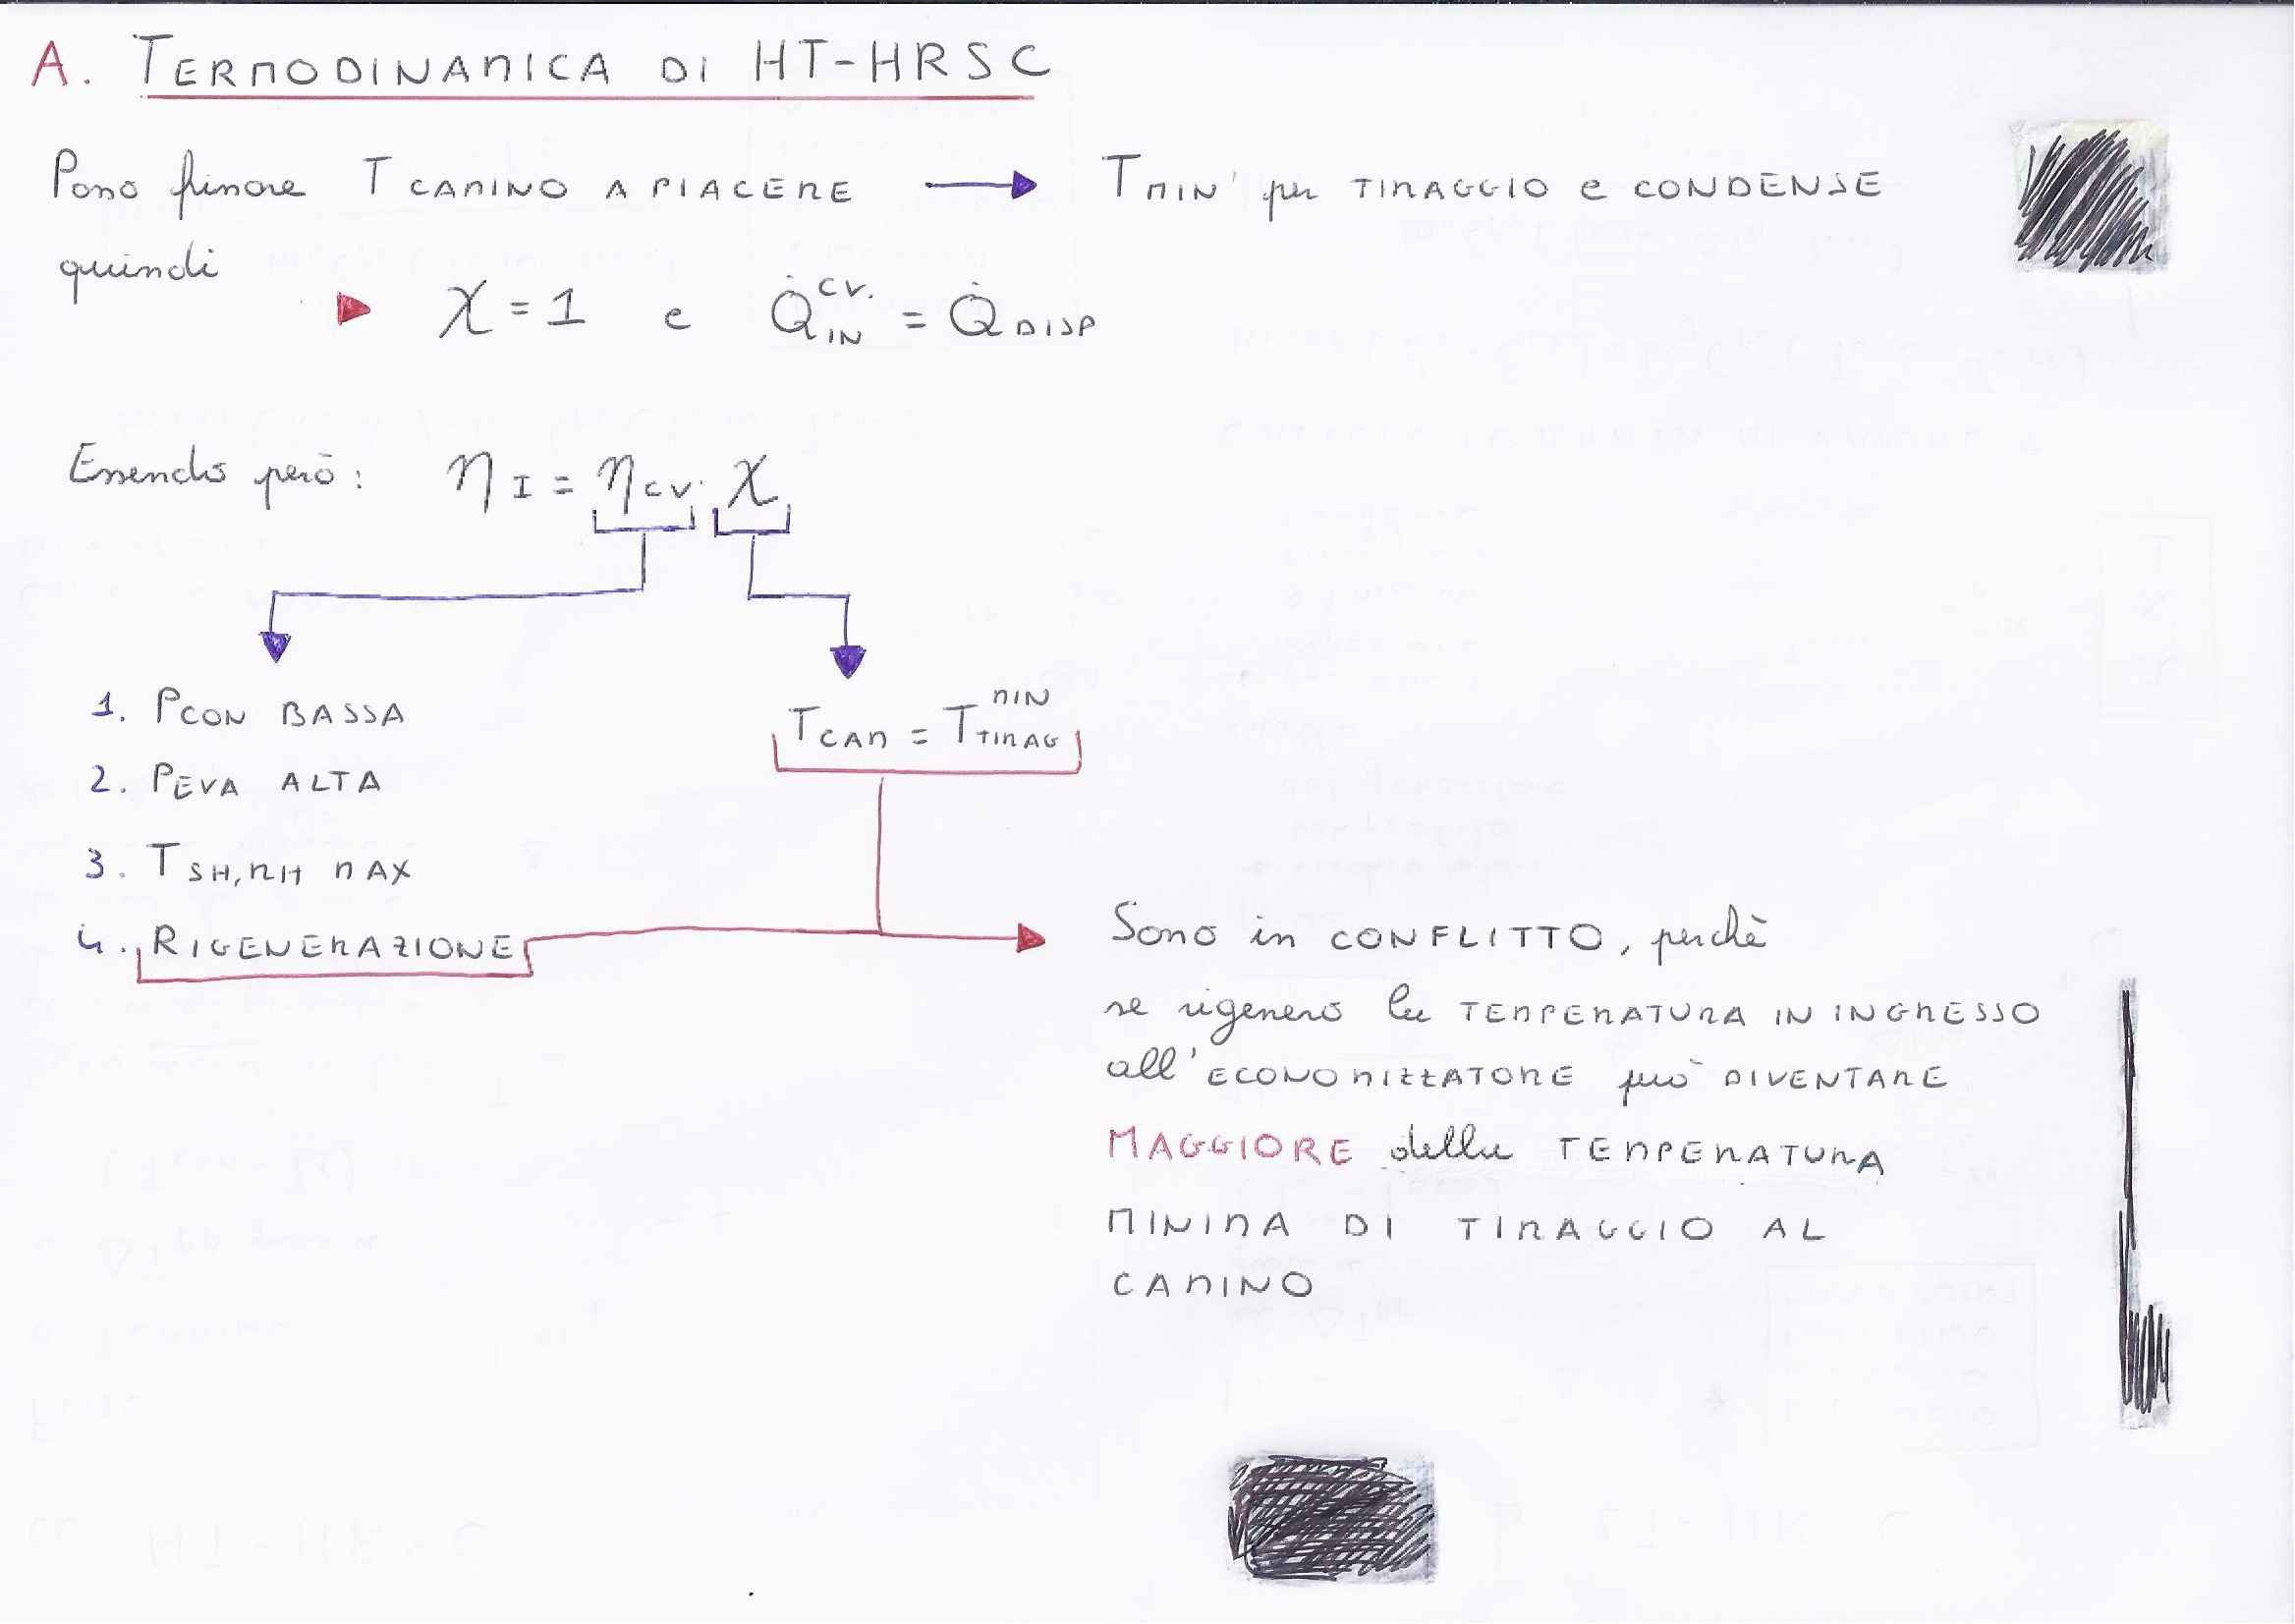 A. TERMODINAMICA DI HT-HRSC
Posso fissare T CAMINO A PIACERE → T MIN per TIRAGGIO e CONDENSE
quindi
χ = 1 e Q̇ IN CV. = Q̇ DISP
Essendo però: η I = η CV · χ
1. PCON BASSA
2. PEVA ALTA
3. T SH,RH MAX
4. RIGENERAZIONE
T CAM = T TIRAG MIN
Sono in CONFLITTO, perchè
se rigenero la TEMPERATURA IN INGRESSO
all'ECONOMIZZATORE può DIVENTARE
MAGGIORE della TEMPERATURA
MINIMA DI TIRAGGIO AL
CAMINO